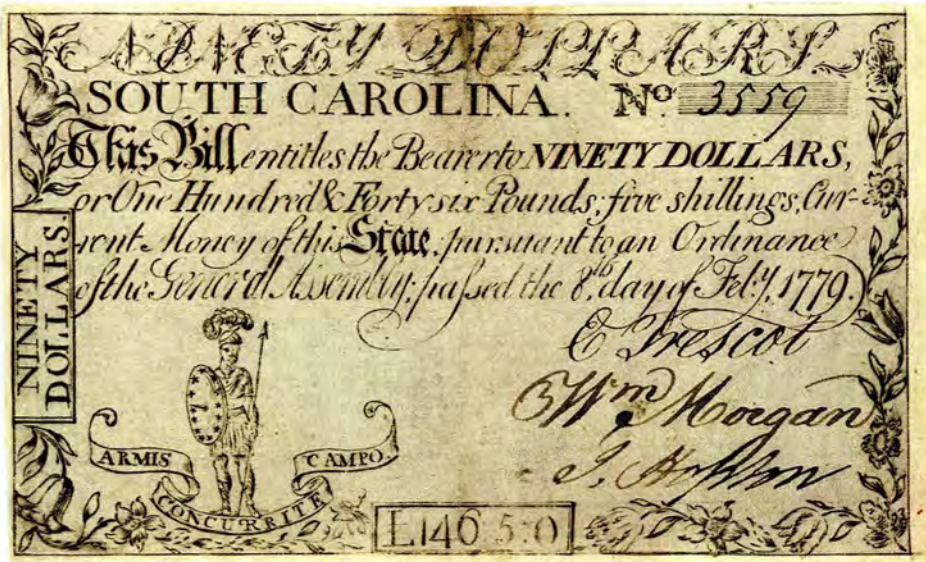 NINETY DOLLARS
SOUTH CAROLINA. No. 3559
This Bill entitles the Bearer to NINETY DOLLARS,
or One Hundred & Forty six Pounds, five shillings, Cur-
rent Money of this State, pursuant to an Ordinance
of the General Assembly, passed the 8th. day of Feby. 1779.
NINETY
DOLLARS.
E Prescot
Wm Morgan
ARMIS
CAMPO.
CONCURRITE
L146 5:0